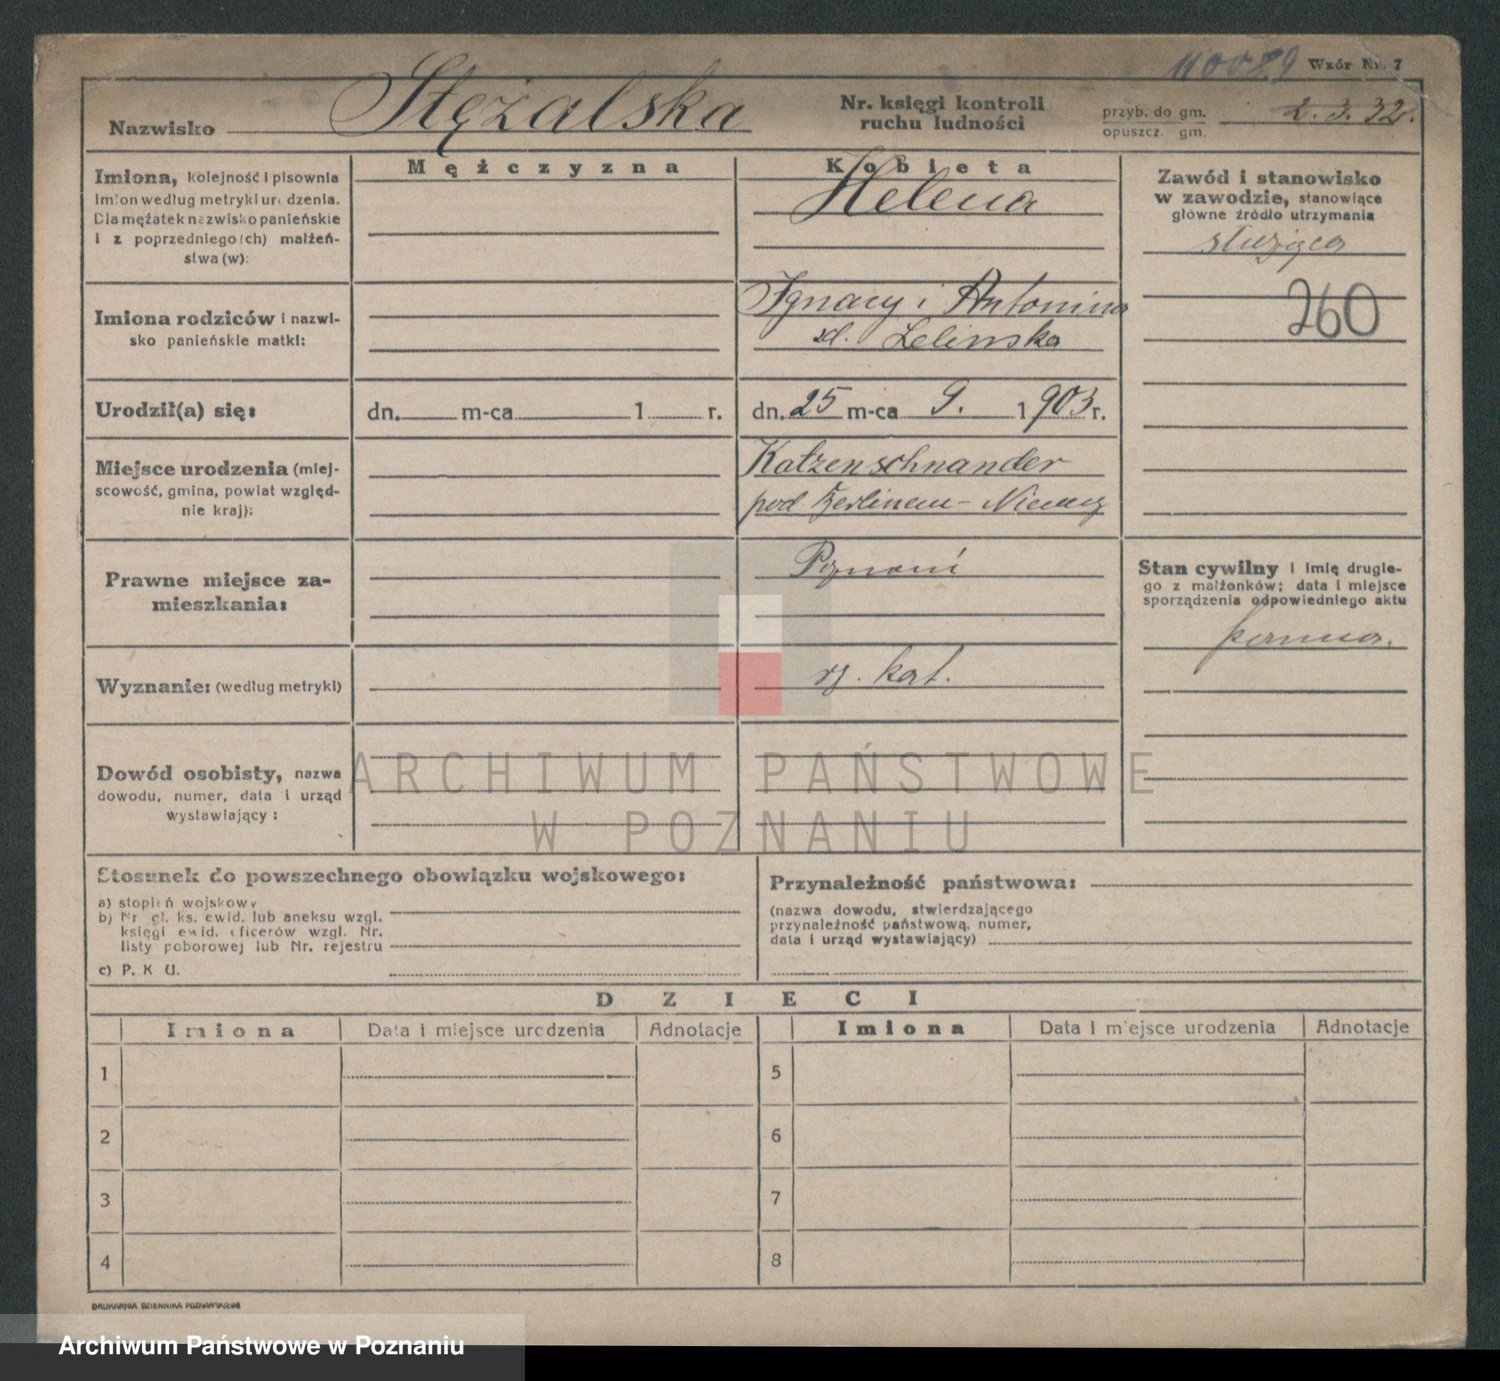 110089 Wzór Nr. 7
Nazwisko Stężalska
Nr. księgi kontroli
ruchu ludności
przyb. do gm.
opuszcz. gm.
2.3.32.
Mężczyzna
Kobieta
Imiona, kolejność i pisownia
imion według metryki urodzenia.
Dla mężatek nazwisko panieńskie
i z poprzedniego(ch) małżeń-
stwa (w):
Helena
Zawód i stanowisko
w zawodzie, stanowiące
główne źródło utrzymania
służąca
260
Imiona rodziców i nazwi-
sko panieńskie matki:
Ignacy i Antonina
zd. Lelinska
Urodził(a) się:
dn. m-ca 1 r.
dn. 25 m-ca 9. 1903 r.
Miejsce urodzenia (miej-
scowość, gmina, powiat względ-
nie kraj):
Katzenschnander
pod Berlinem - Niemcy
Prawne miejsce za-
mieszkania:
Poznań
Stan cywilny i imię drugie-
go z małżonków; data i miejsce
sporządzenia odpowiedniego aktu
panna.
Wyznanie: (według metryki)
rz. kat.
Dowód osobisty, nazwa
dowodu, numer, data i urząd
wystawiający:
ARCHIWUM PAŃSTWOWE
W POZNANIU
Stosunek do powszechnego obowiązku wojskowego:
a) stopień wojskowy
b) Nr gl. ks. ewid. lub aneksu wzgl.
księgi ewid. oficerów wzgl. Nr.
listy poborowej lub Nr. rejestru
c) P. K U.
Przynależność państwowa:
(nazwa dowodu, stwierdzającego
przynależność państwową, numer,
data i urząd wystawiający)
DZIECI
Imiona Data i miejsce urodzenia Adnotacje Imiona Data i miejsce urodzenia Adnotacje
1 5
2 6
3 7
4 8
DRUKARNIA DZIENNIKA POZNAŃSKIEGO
Archiwum Państwowe w Poznaniu